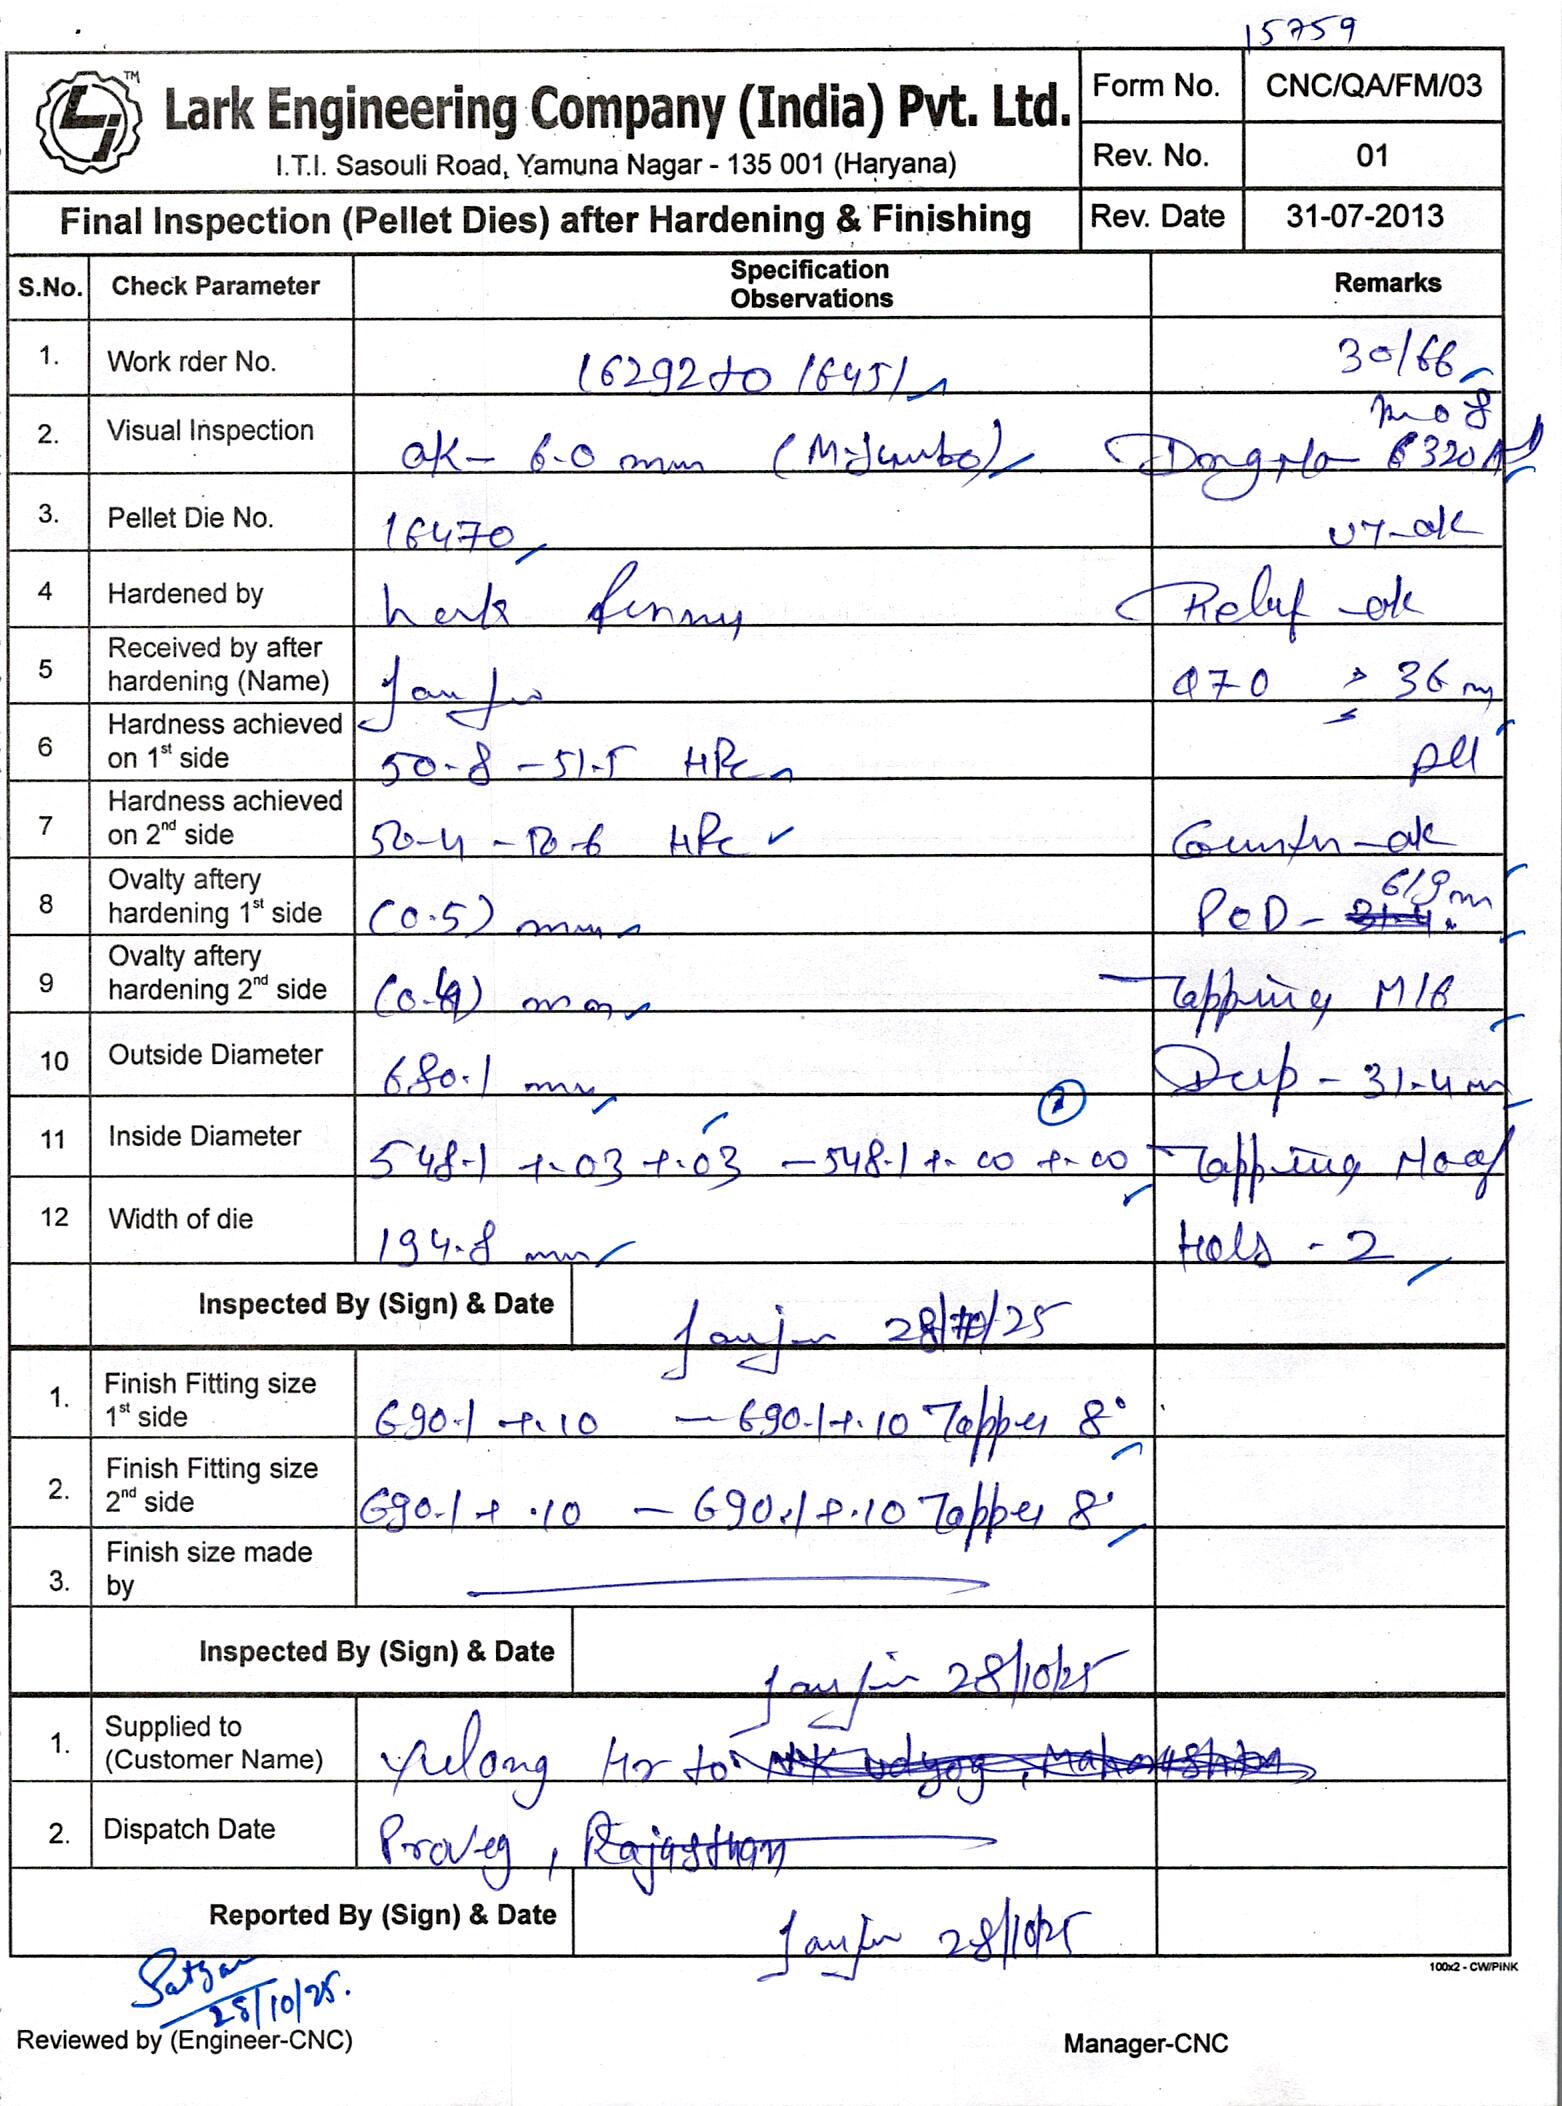 15759
TM
Lark Engineering Company (India) Pvt. Ltd.
I.T.I. Sasouli Road, Yamuna Nagar - 135 001 (Haryana)
Form No. CNC/QA/FM/03
Rev. No. 01
Final Inspection (Pellet Dies) after Hardening & Finishing
Rev. Date 31-07-2013
S.No. Check Parameter Specification Observations Remarks
1. Work rder No. 16292 to 16451 30/66
2. Visual Inspection OK - 6.0 mm (M-Jumbo)
3. Pellet Die No. 16470 UT-ok
4 Hardened by Relief ok
5 Received by after hardening (Name) 36
6 Hardness achieved on 1st side 50.8 - 51.5 HRc
7 Hardness achieved on 2nd side 50.4 - 50.6 HRc Counter-ok
8 Ovalty aftery hardening 1st side (0.5) mm PCD - 619 m
9 Ovalty aftery hardening 2nd side mm Tapping M16
10 Outside Diameter 680.1 mm Deep - 31.4 m
11 Inside Diameter 548.1 +.03 +.03 - 548.1 +.00 +.00 Tapping No of
12 Width of die 194.8 mm Hols - 2
Inspected By (Sign) & Date 28/10/25
1. Finish Fitting size 1st side 690.1 +.10 - 690.1 +.10 Tapper 8°
2. Finish Fitting size 2nd side 690.1 + .10 - 690.1 +.10 Tapper 8°
3. Finish size made by
Inspected By (Sign) & Date 28/10/25
1. Supplied to (Customer Name) Yulong Hr to NK Udyog, Maharashtra
2. Dispatch Date Proveg, Rajasthan
Reported By (Sign) & Date 28/10/25
100x2 - CW/PINK
28/10/25.
Reviewed by (Engineer-CNC) Manager-CNC